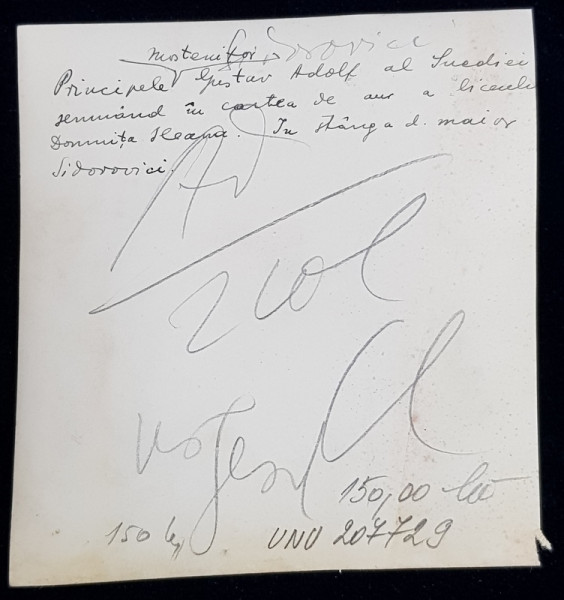 moștenitor Sidorovici
Principele Gustav Adolf al Suediei
semnând în cartea de aur a liceului
Domnița Ileana. În stânga d. maior
Sidorovici.
2 col
150,00 lei
150 lei
UNU 207729